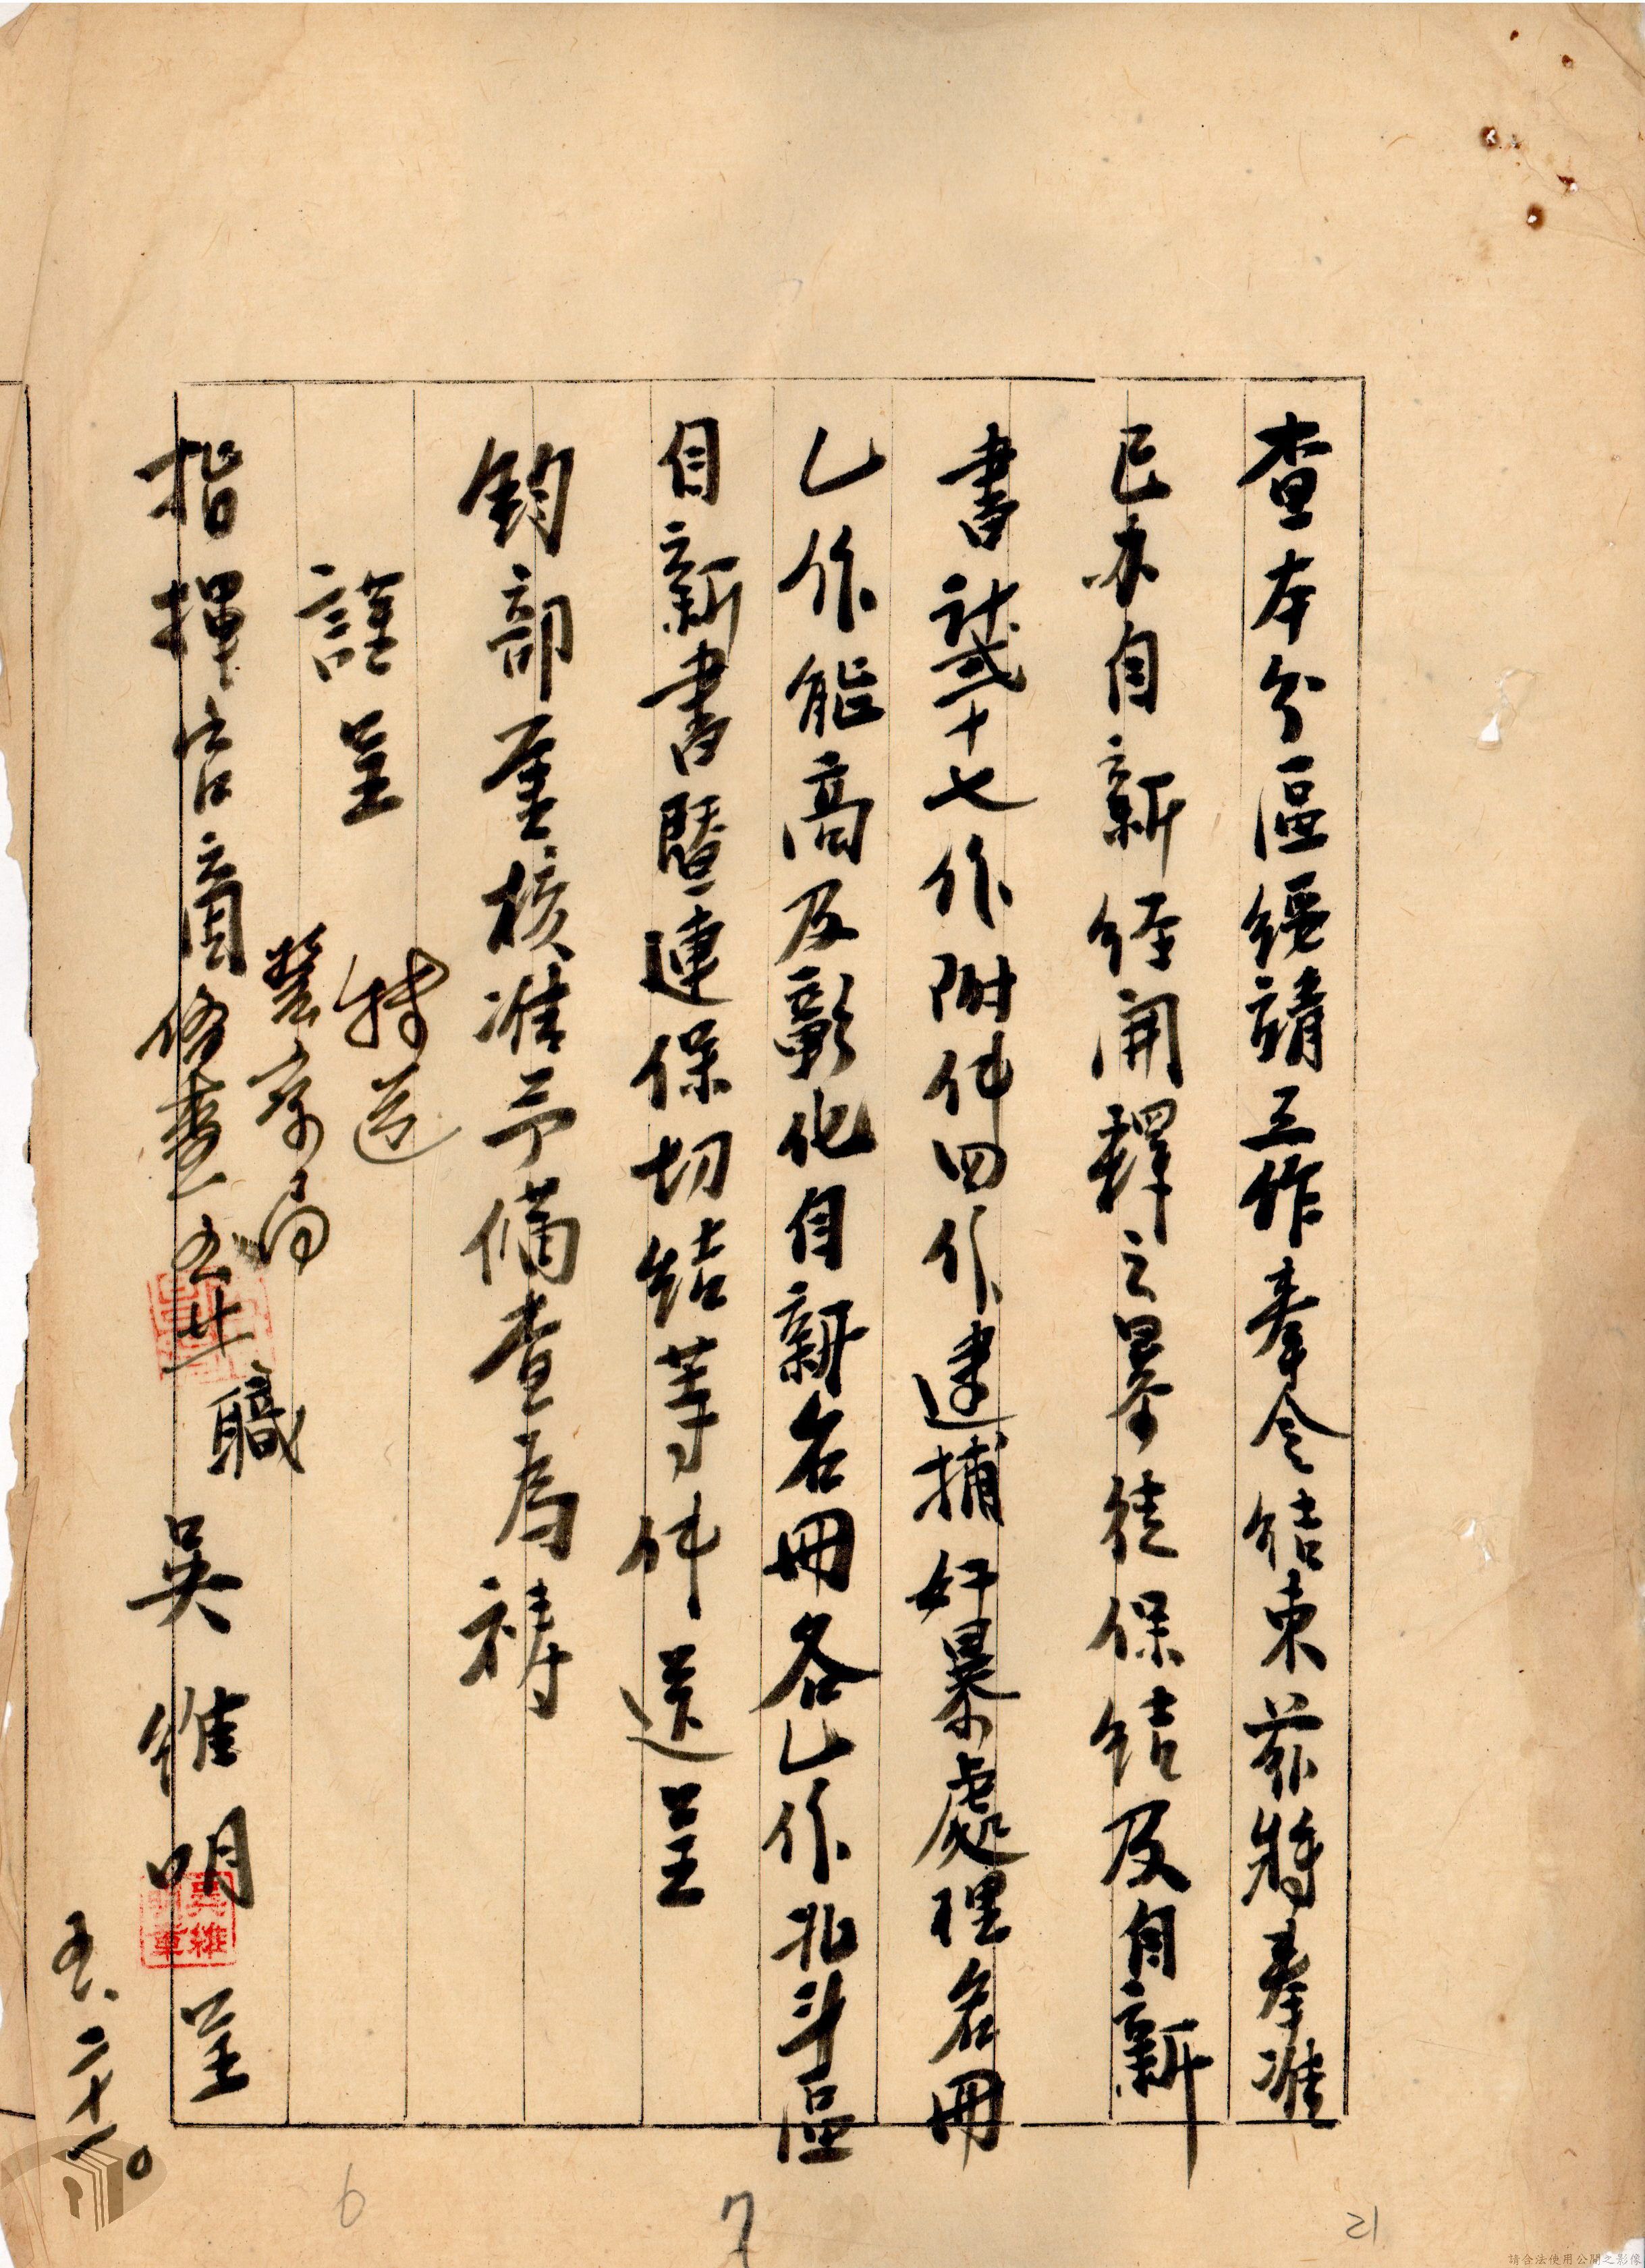 查本分區綏靖工作奉令結束茲將奉准
已办自新経開釋之暴徒保結及自新
書計貳十七份附件四份逮捕奸暴處理名冊
乙份能高及彰化自新名冊各乙份北斗區
自新書暨連保切結等件送呈
鈞部鑒核准予備查為禱
謹呈
指揮官
職 吳維明 呈
五.二十一。
轉送
警察局
備查
吳維
明章
6
7
21
請合法使用公開之影像